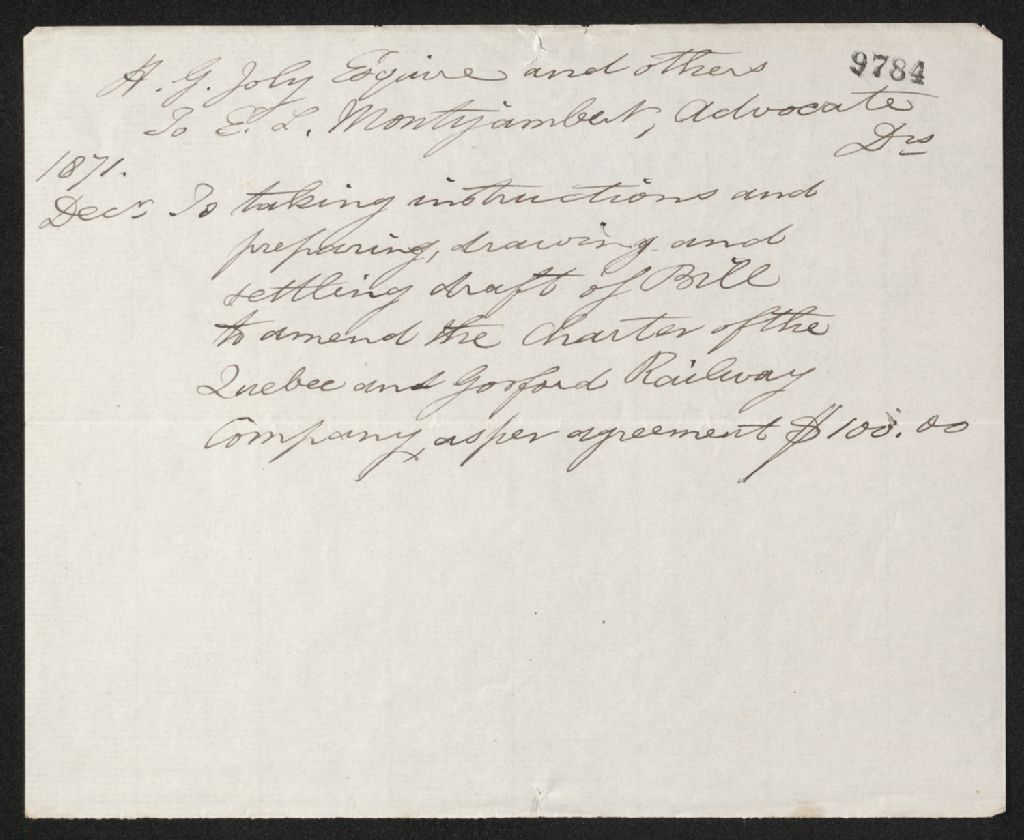 9784
H. G. Joly Esquire and others
To E. L. Montizambert, Advocate
Drs
1871.
Decr. To taking instructions and
preparing, drawing and
settling draft of Bill
to amend the Charter of the
Quebec and Gosford Railway
Company, as per agreement $100.00